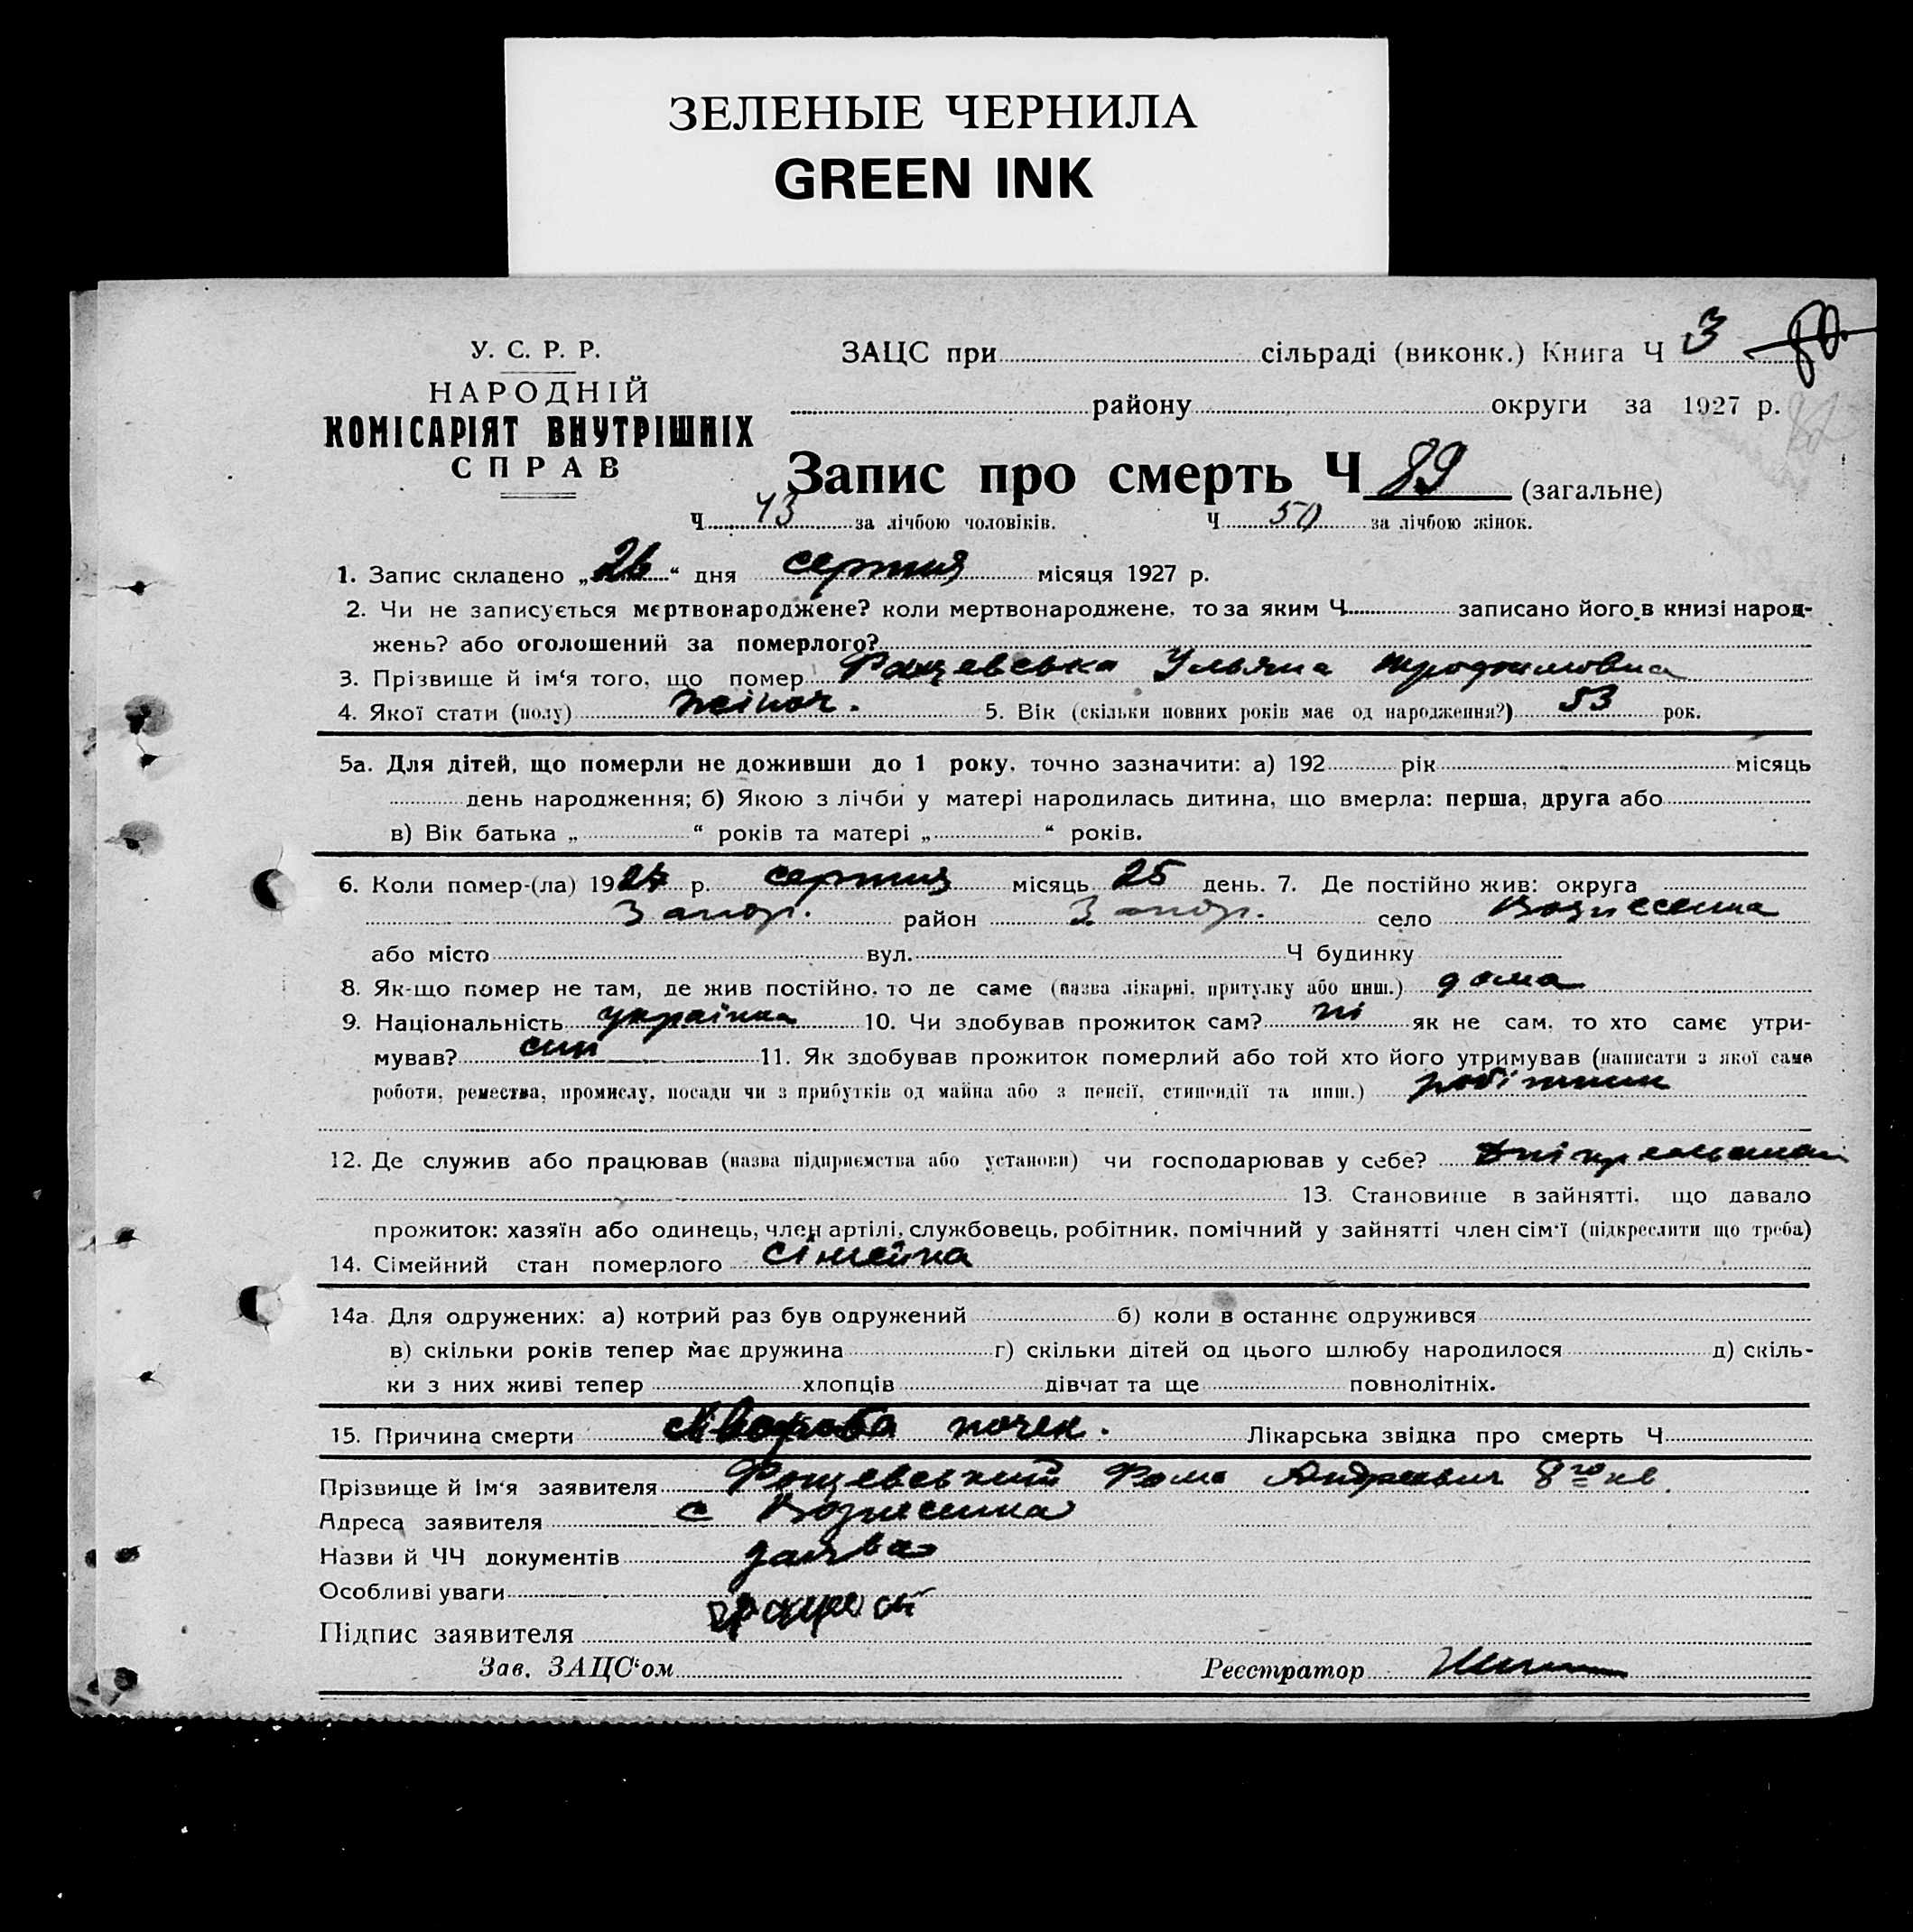 ЗЕЛЕНЫЕ ЧЕРНИЛА
GREEN INK
У. С. Р. Р.
НАРОДНІЙ
КОМІСАРІЯТ ВНУТРІШНІХ
СПРАВ
ЗАЦС при сільраді (виконк.) Книга Ч 3
району округи за 1927 р.
Запис про смерть Ч 89 (загальне)
Ч за лічбою чоловіків. Ч 50 за лічбою жінок.
1. Запис складено „26“ дня серпня місяця 1927 р.
2. Чи не записується мертвонароджене? коли мертвонароджене, то за яким Ч записано його в книзі народ-
жень? або оголошений за померлого?
3. Прізвище й ім‘я того, що помер Ращевська Ульяна Трофимовна
4. Якої стати (полу) жіноч. 5. Вік (скільки повних років має од народження?) 53 рок.
5а. Для дітей, що померли не доживши до 1 року, точно зазначити: а) 192 рік місяць
день народження; б) Якою з лічби у матері народилась дитина, що вмерла: перша, друга або
в) Вік батька „ “ років та матері „ “ років.
6. Коли помер-(ла) 1927 р. серпня місяць 25 день. 7. Де постійно жив: округа
Запор. район Запор. село Вознесенка
або місто вул. Ч будинку
8. Як-що помер не там, де жив постійно, то де саме (назва лікарні, притулку або инш.) дома
9. Національність українка 10. Чи здобував прожиток сам? ні як не сам, то хто саме утри-
мував? син 11. Як здобував прожиток померлий або той хто його утримував (написати з якої саме
роботи, ремества, промислу, посади чи з прибутків од майна або з пенсії, стипендії та инш.) робітник
12. Де служив або працював (назва підприємства або установи) чи господарював у себе?
13. Становище в зайнятті, що давало
прожиток: хазяїн або одинець, член артілі, службовець, робітник, помічний у зайнятті член сім‘ї (підкреслити що треба)
14. Сімейний стан померлого сімейна
14а. Для одружених: а) котрий раз був одружений б) коли в останнє одружився
в) скільки років тепер має дружина г) скільки дітей од цього шлюбу народилося д) скіль-
ки з них живі тепер хлопців дівчат та ще повнолітніх.
15. Причина смерти хвороба почек. Лікарська звідка про смерть Ч
Прізвище й Ім‘я заявителя Ращевський Фома Андреевич
Адреса заявителя с Вознесенка
Назви й ЧЧ документів заява
Особливі уваги
Підпис заявителя
Зав. ЗАЦС‘ом Реєстратор